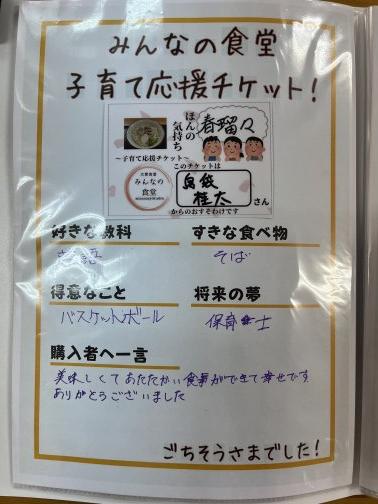 みんなの食堂
子育て応援チケット!
ほんの
気持ち
春瑠々
~子育て応援チケット~
このチケットは
みんなの
食堂
桂太
さん
からのおすそわけです
好きな教科
すきな食べ物
そば
得意なこと
将来の夢
バスケットボール
保育士
購入者へ一言
美味しくてあたたかい食事ができて幸せです
ありがとうございました
ごちそうさまでした!